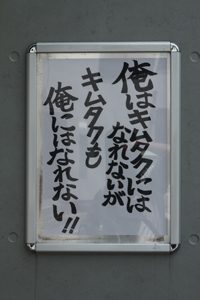 俺はキムタクには
なれないが
キムタクも
俺にはなれない!!